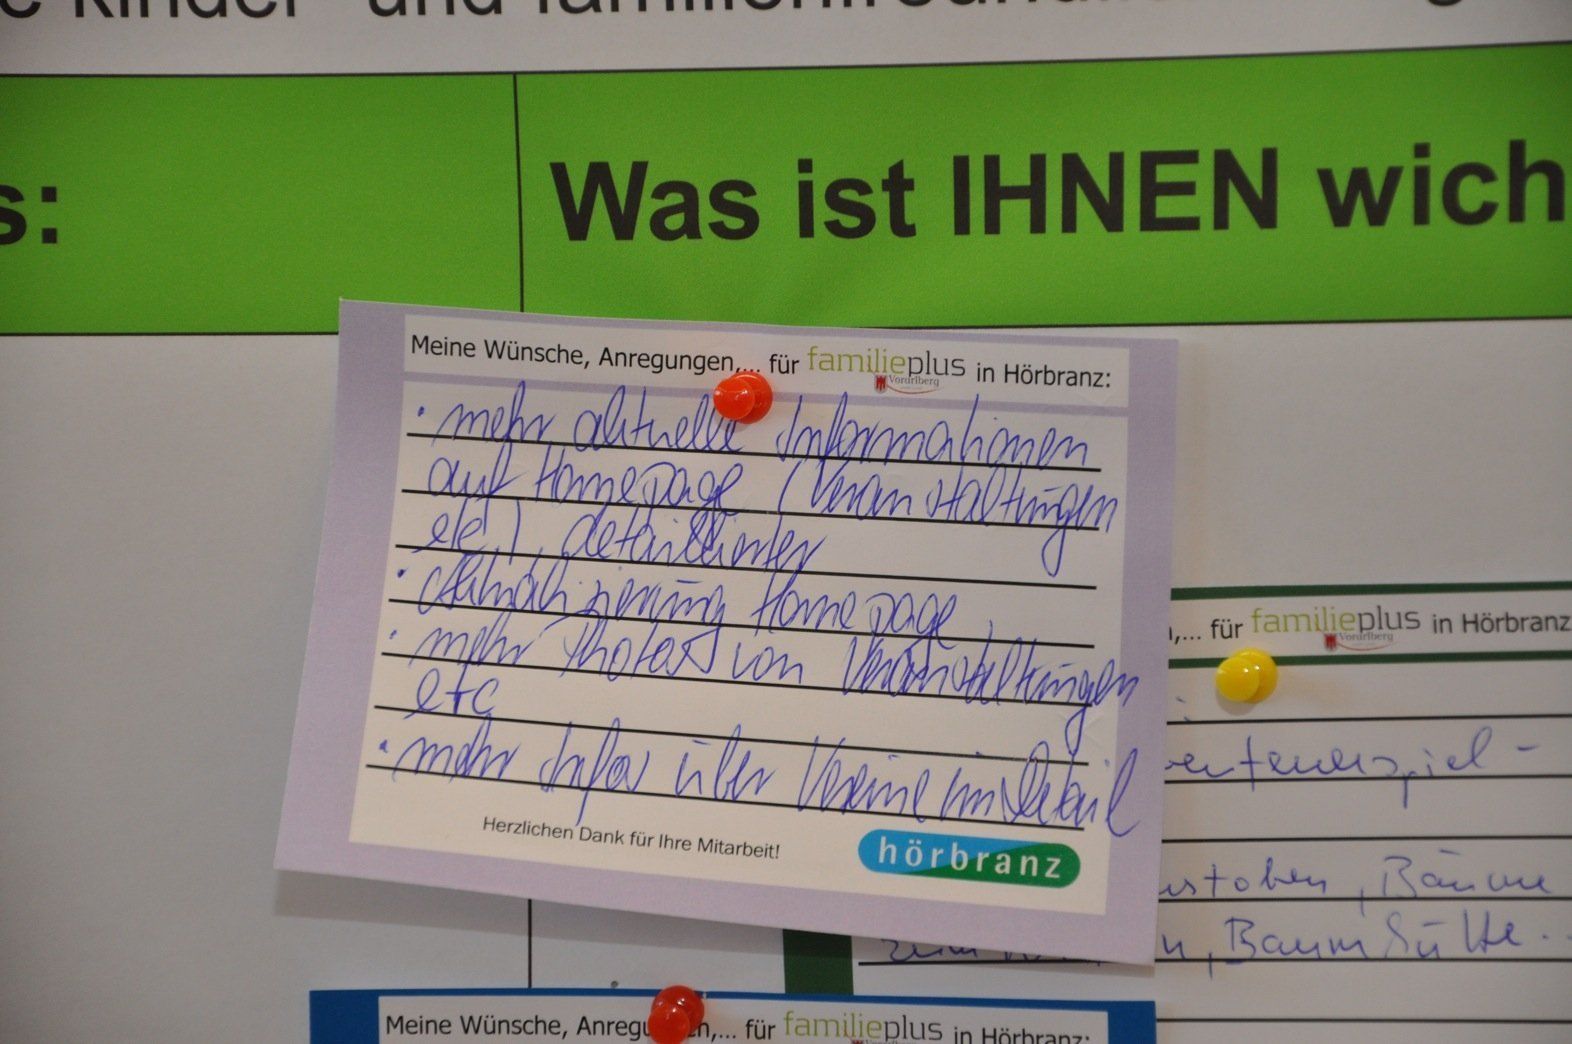 kinder- und familienfreundli
s:
Was ist IHNEN wich
Meine Wünsche, Anregungen,... für familieplus in Hörbranz:
Vorarlberg
· mehr aktuelle Informationen
auf Homepage (Veranstaltungen
etc.), detaillierter
· Aktualisierung Homepage
· mehr Photos von Veranstaltungen
etc
· mehr Infos über Vereine im Detail
Herzlichen Dank für Ihre Mitarbeit!
hörbranz
,... für familieplus in Hörbranz
Vorarlberg
enteuerspiel -
stoben, Bäume
n, Baumhütte..
Meine Wünsche, Anregu n,... für familieplus in Hörbranz: